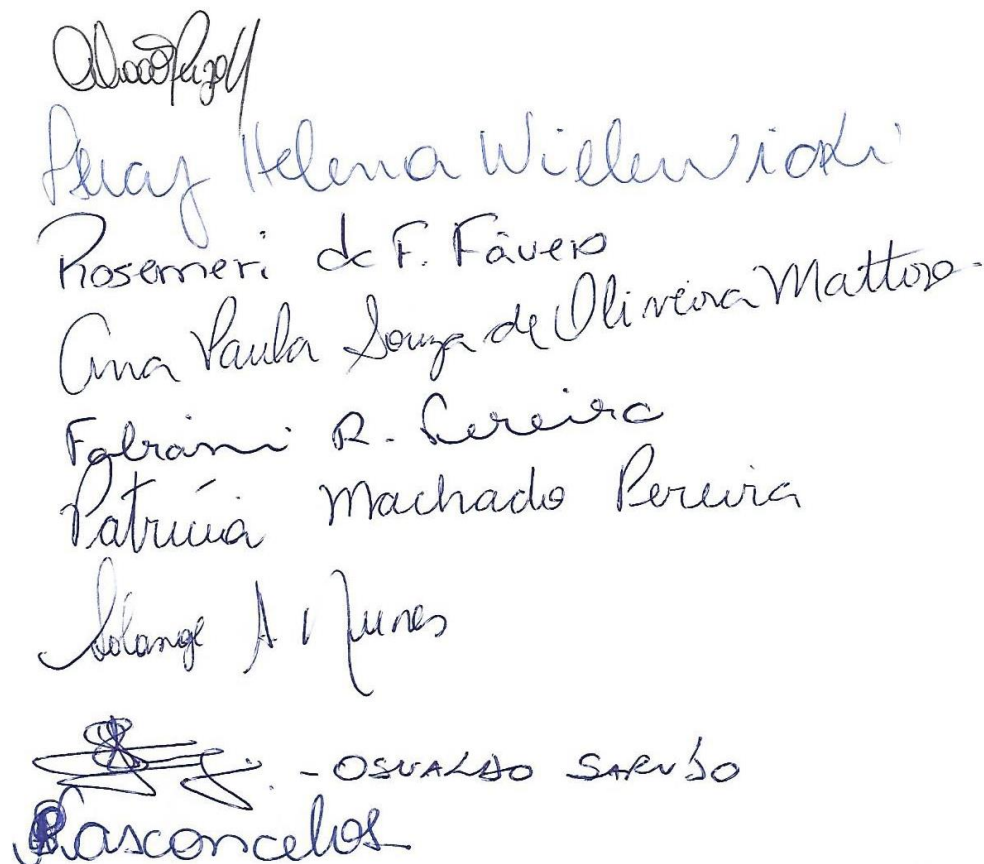 Helena Wielewicki
Rosemeri de F. Fávero
Ana Paula Souza de Oliveira Mattoso.
Fabiani R. Pereira
Patrícia Machado Pereira
Solange A Nunes
- OSVALDO
Vasconcelos